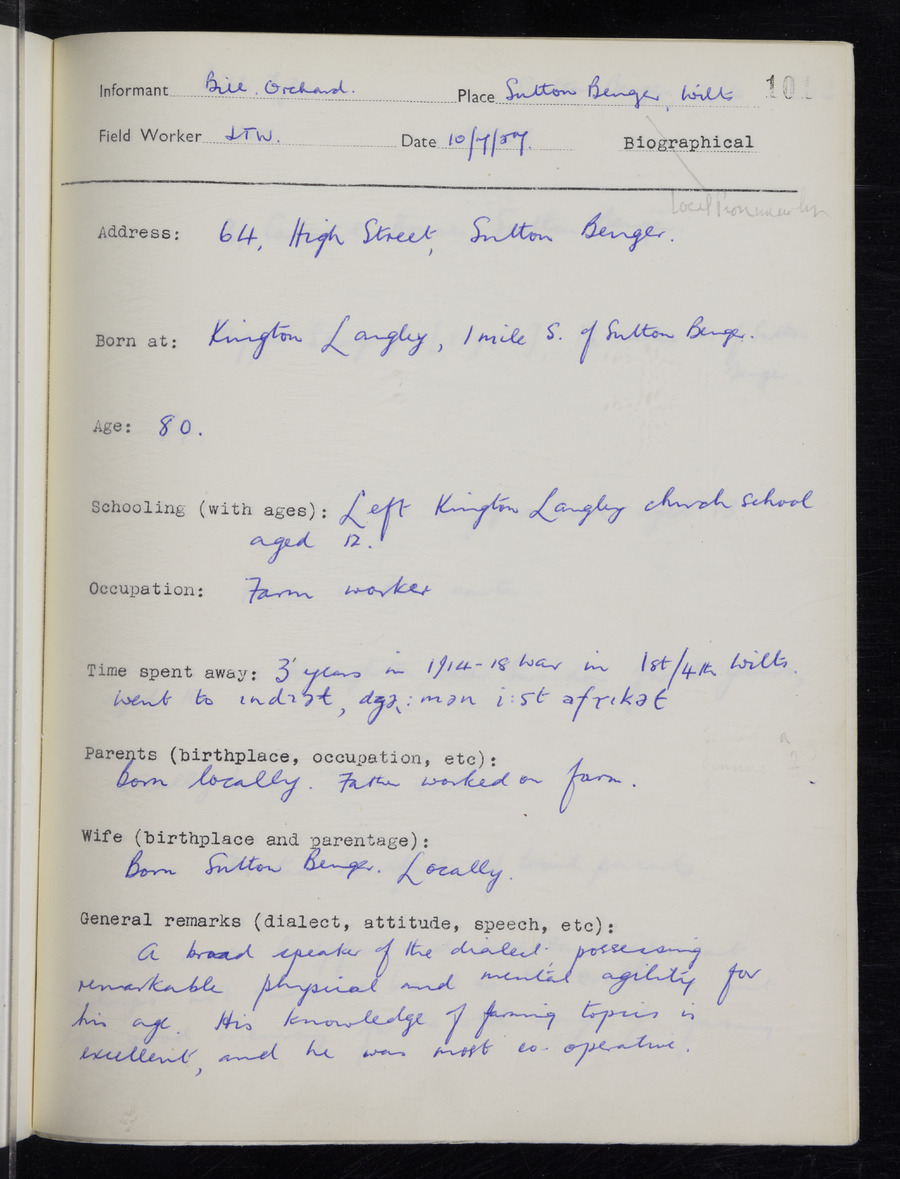 Informant Bill Orchard. Place Sutton Benger, Wilts 101
Field Worker JTW. Date 10/7/57. Biographical
Local
Address: 64, High Street, Sutton Benger.
Born at: Kington Langley, 1 mile S. of Sutton Benger.
Age: 80.
Schooling (with ages): Left Kington Langley church school
aged 12.
Occupation: Farm worker
Time spent away: 3 years in 1914-18 War in 1st/4th Wilts.
went to
Parents (birthplace, occupation, etc):
Born locally. Father worked on farm.
Wife (birthplace and parentage):
Born Sutton Benger. Locally.
General remarks (dialect, attitude, speech, etc):
A broad speaker of the dialect, possessing
remarkable physical and mental agility for
his age. His knowledge of farming topics is
excellent, and he was most co-operative.